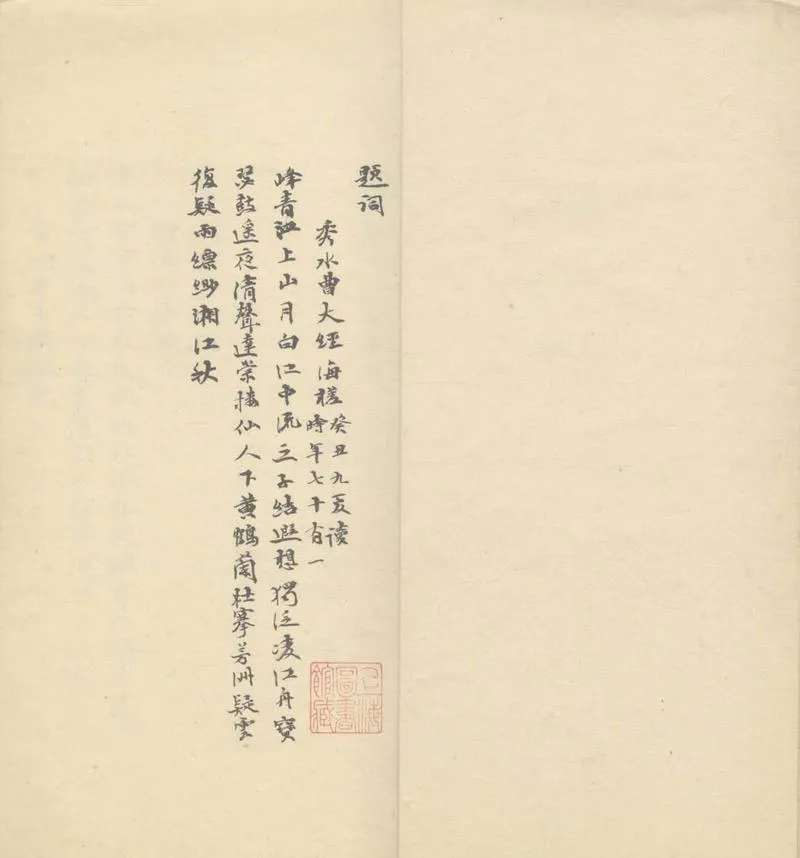 題詞
秀水曹大經海槎
癸丑九夏讀
時年七十有一
峰青江上山月白江中流之子結遐想獨泛凌江舟寶
瑟鼓遙夜清聲達崇樓仙人下黃鶴蘭社搴芳洲疑雲
復疑雨縹緲湘江秋
上海圖書館藏